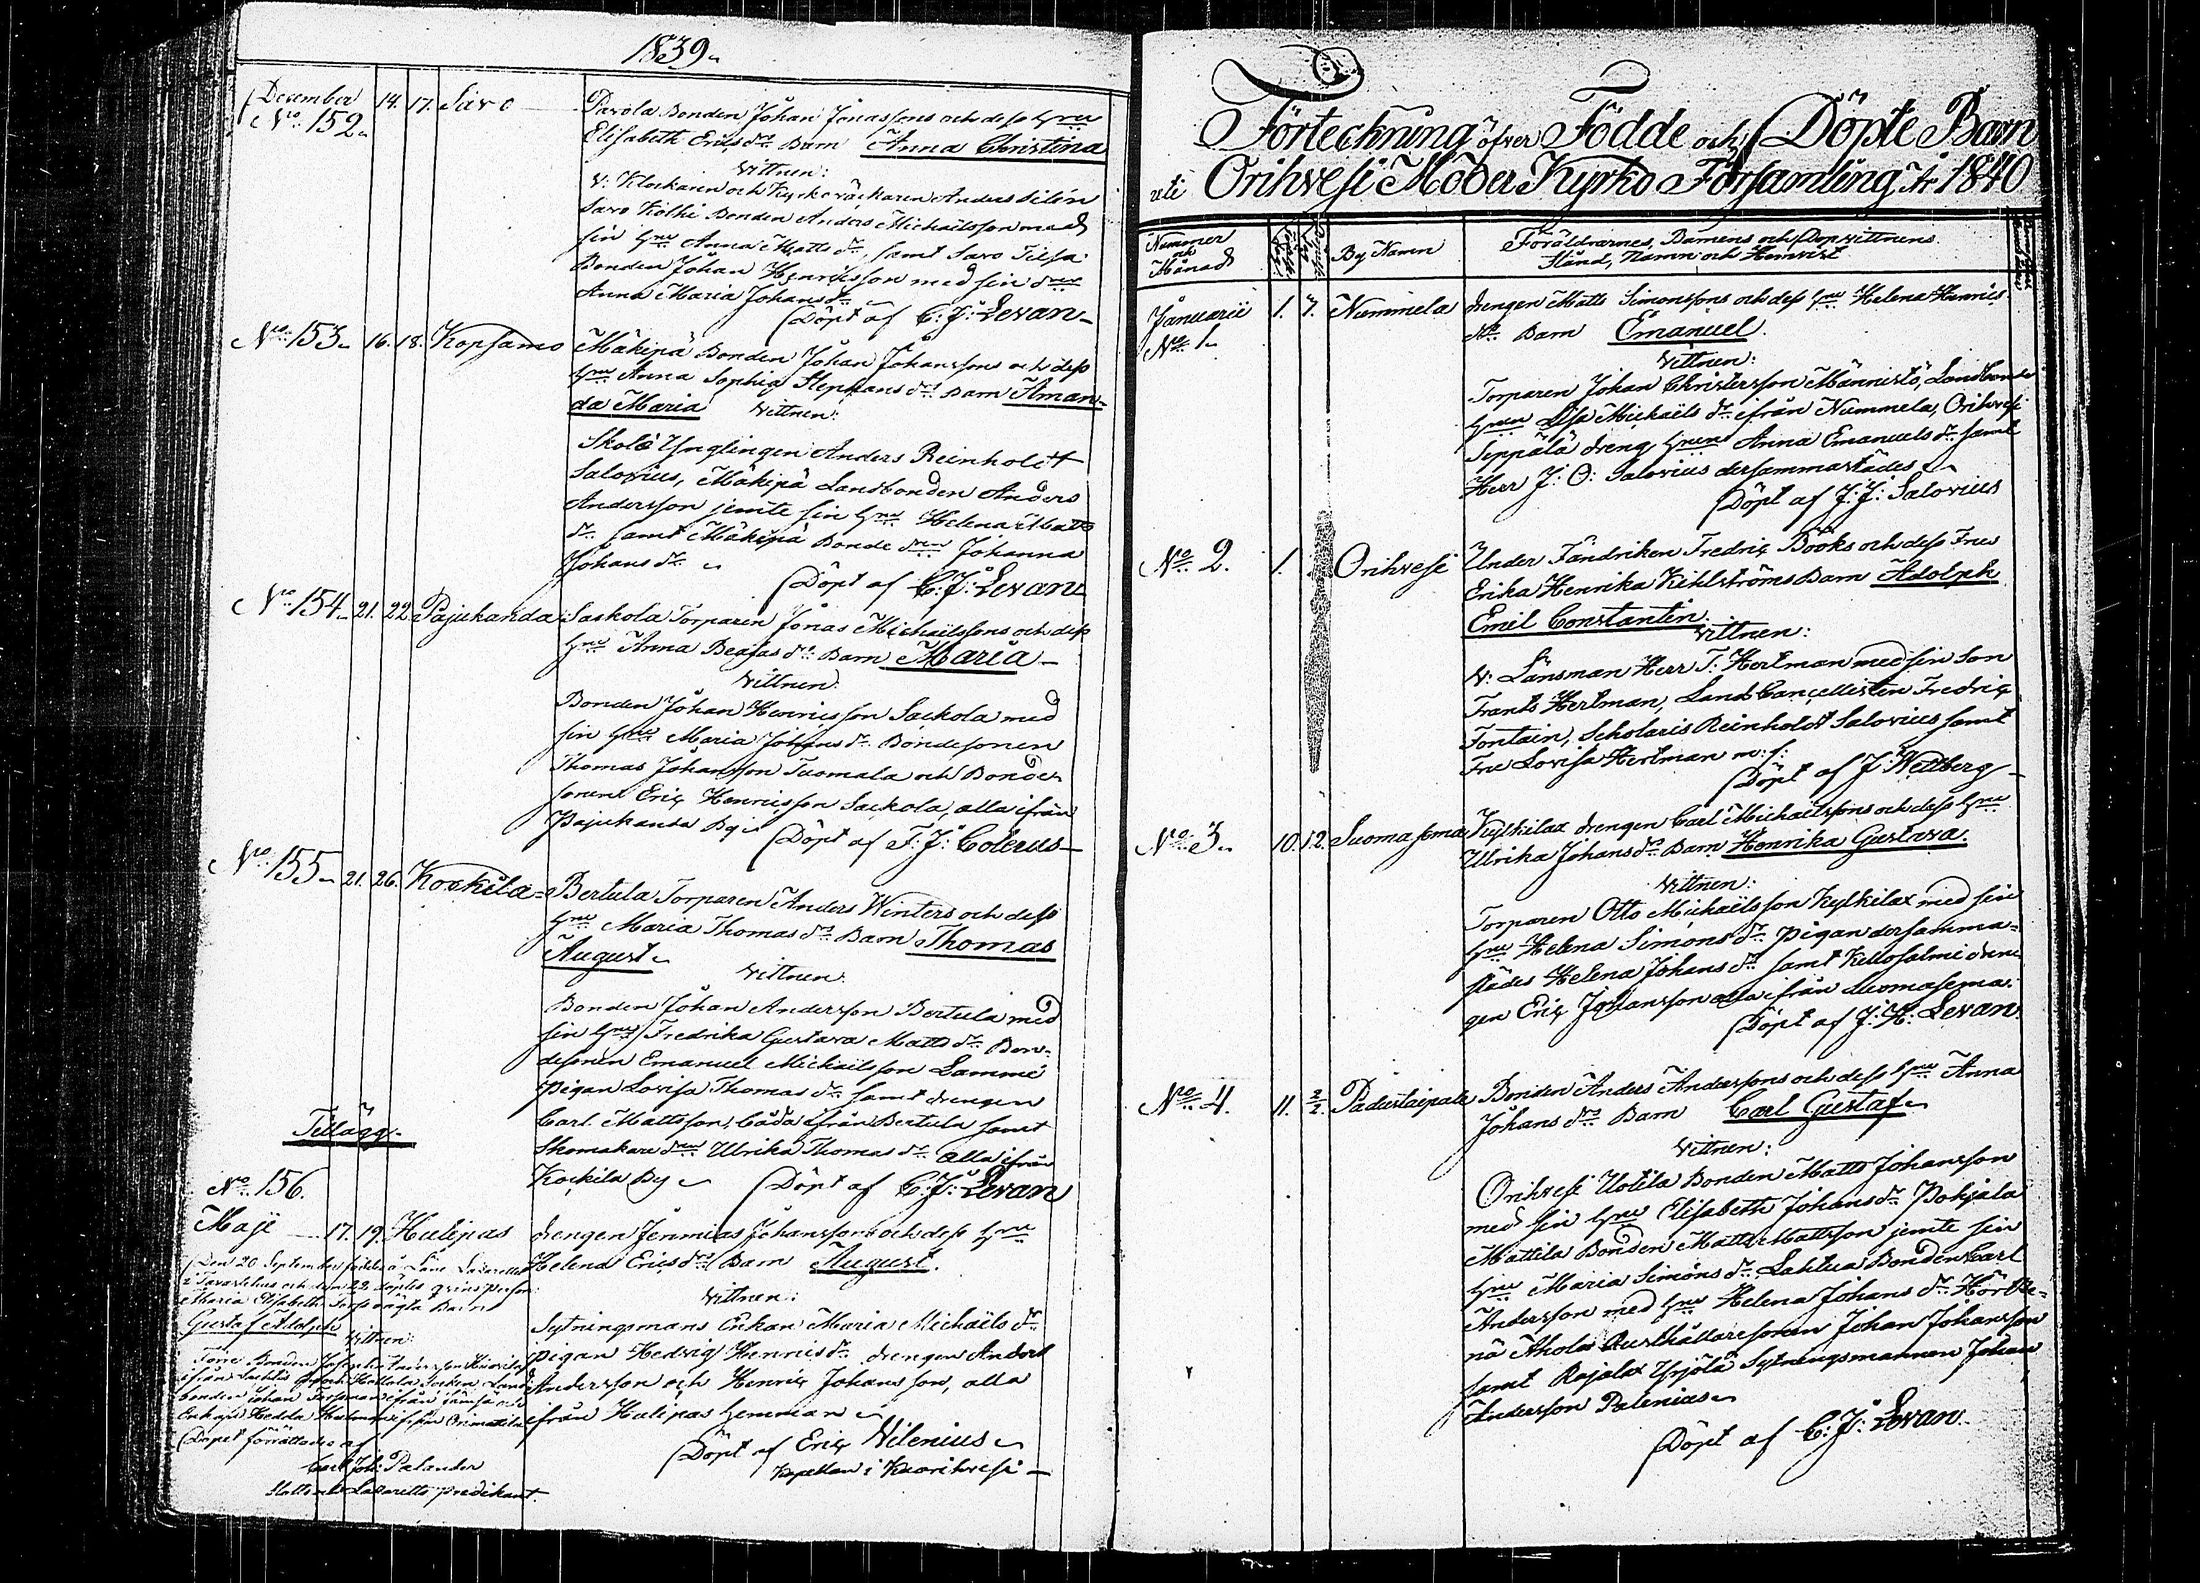 1839.
December 14. 17. Savo Pavola Bonden Johan Jonassons och dess Hru
No 152. Elisabeth Ericsdrs Barn Anna Christina
Vittnen:
V: Klockaren och Kyrkoväckaren Anders Silén
Savo Kölhi Bonden Anders Michaëlsson med
sin Hru Anna Matts dr, samt Savo
Bonden Johan Henricsson med sin Hru
Anna Maria Johans dr
Döpt af C: J: Levan
No 153. 16. 18. Kopsamo Mäkipä Bonden Johan Johanssons och dess
Hru Anna Sophia Stephans drs Barn Aman-
da Maria Vittnen:
Skole Ynglingen Anders Reinholdt
Salovius, Mäkipä Landbonden Anders
Andersson jemte sin Hru Helena Matts
dr samt Mäkipä Bonde Hrun Johanna
Johans dr
Döpt af C: J: Levan
No 154. 21. 22. Pajukanda Sackola Torparen Jonas Michaëlssons och dess
Hru Anna Beatas drs Barn Maria
Vittnen:
Bonden Johan Henricsson Sackola med
sin Hru Maria Johans dr Bondesonen
Thomas Johansson Tuomala och Bonde-
sonen Eric Henricsson Sackola, alla ifrån
Pajukanda By
Döpt af F: J: Colerus
No 155. 21. 26. Kockila Bertula Torparen Anders Winters och dess
Hru Maria Thomas drs Barn Thomas
August
Vittnen:
Bonden Johan Andersson Bertula med
sin Hru Fredrika Gustava Matts dr Bon-
desonen Emanuel Michaëlsson Lammi
pigan Lovisa Thomas dr samt drengen
Carl Mattsson, båda ifrån Bertula samt
Skomakare Hrun Ulrika Thomas dr alla ifrån
Kockila By
Döpt af C: J: Levan
Tillägg.
No 156.
Maji 17. 19. Hulipas drengen Jeremias Johanssons och dess Hru
Helena Ericsdrs Barn August.
Vittnen:
Sytningsmans Enkan Maria Michaëls dr
pigan Hedvig Henrics dr drengen Anders
Andersson och Henric Johansson, alla
ifrån Hulipas hemman
Döpt af Eric Vilenius
Kapellan i Kuorihvesi
Den 20 September föddes å Läne Lazarettet
i Tavastehus och den 22 döptes
Maria Elisabeth Barn
Gustaf Adolph
Vittnen:
Bonden Josephi Andersson
ifrån Hollola Socken Land-
bonden Johan ifrån Jämsä och
Enkan Hedda ifrån Orimatila
Döpet förrättades af
Carl Joh: Palander
Slotts och Lazaretts predikant.
Förtechning öfver Födde och Döpte Barn
uti Orihvesi Moder Kyrko Församling År 1840
Nummer och Månad By Namn Föräldrarnes, Barnens och Dopvittnens
Stånd, Namn och Hemvist
Januarii 1. 7. Nummela drengen Matts Simonssons och dess Hru Helena Henrics
No 1. drs Barn Emanuel.
Vittnen:
Torparen Johan Christersson Männistö, Landbonde
Hrun Lisa Michaëls dr ifrån Nummela, Orihvesi
Seppälä dreng Hrun Anna Emanuels dr samt
Herr J: O: Salovius dersammastädes
Döpt af J: J: Salovius
No 2. 1. Orihvesi Under Fändriken Fredric Bööks och dess Fru
Erika Henrika Kihlströms Barn Adolph
Emil Constantin.
Vittnen:
V: Länsman Herr T: Hertman med sin Son
Frants Hertman, Lands Cancellisten Fredric
Fontain, Scholaris Reinholdt Salovius samt
Fru Lovisa Hertman m: f:
Döpt af J: Wettberg
No 3. 10. 12. Suomasema Kylkilax drengen Carl Michaëlssons och dess Hru
Ulrika Johans drs Barn Henrika Gustava.
Vittnen:
Torparen Otto Michaëlsson Kylkilax med sin
Hru Helena Simons dr pigan dersamma-
städes Helena Johans dr samt Kellosalmi dren-
gen Eric Johansson alla ifrån Suomasema.
Döpt af J: H: Levan.
No 4. 11. 2/2. Padustaipale Bonden Anders Anderssons och dess Hru Anna
Johans drs Barn Carl Gustaf
Vittnen:
Orihvesi Uotila Bonden Matts Johansson
med sin Hru Elisabeth Johans dr Pohjala
Mattila Bonden Matts Mattsson jemte sin
Hru Maria Simons dr Lahtua Bonden Carl
Andersson med Hru Helena Johans dr
Ahola Rusthållaresonen Johan Johansson
samt Yrjölä Sytningsmannen Johan
Andersson Palenius
Döpt af C: J: Levan.